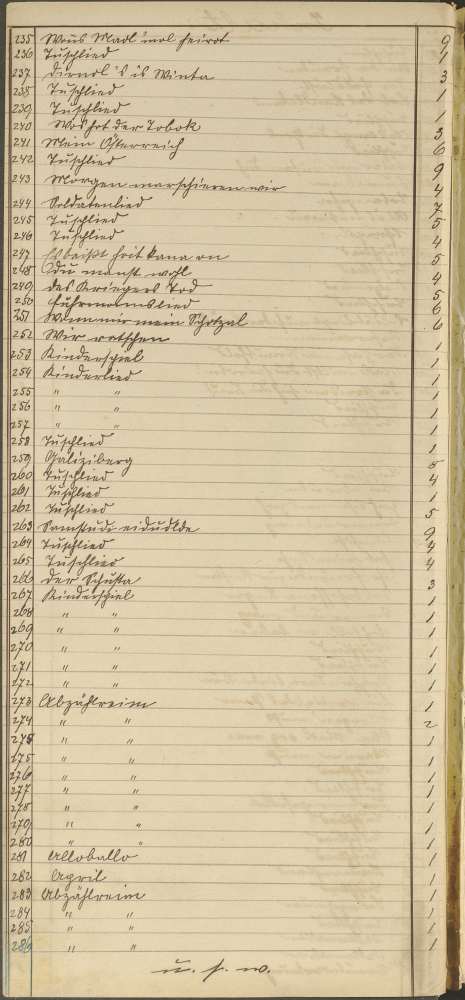 235 Wons Madl mol heirat 9
236 Tuschlied 1
237 Diandl 's is Winta 3
238 Tuschlied 1
239 Tuschlied 1
240 Wos hot der Tobak 3
241 Mein Österreich 6
242 Tuschlied 9
243 Morgen marschieren wir 4
244 Soldatenlied 7
245 Tuschlied 5
246 Tuschlied 4
247 hoit kana on 5
248 Du manst wohl 4
249 Des Kriegers Tod 5
250 Fuhrmannslied 6
251 Wann mir mein Schatzal 6
252 Wir ratschen 1
253 Kinderspiel 1
254 Kinderlied 1
255 " " 1
256 " " 1
257 " " 1
258 Tuschlied 1
259 Galiziberg 5
260 Tuschlied 4
261 Tuschlied 1
262 Tuschlied 5
263 9
264 Tuschlied 4
265 Tuschlied 4
266 Der Schusta 3
267 Kinderspiel 1
268 " " 1
269 " " 1
270 " " 1
271 " " 1
272 " " 1
273 Abzählreim 1
274 " " 2
275 " " 1
275 " " 1
276 " " 1
277 " " 1
278 " " 1
279 " " 1
280 " " 1
281 Alloballo 1
282 April 1
283 Abzählreim 1
284 " " 1
285 " " 1
286 " " 1
u. s. w.